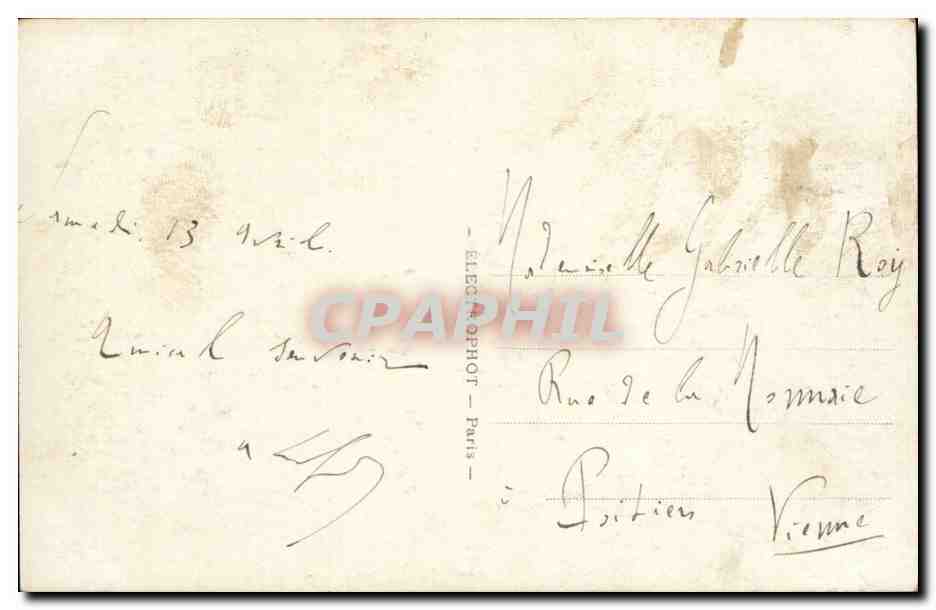 Samedi 13 Avril.
Amical souvenir
— ELECTROPHOT — Paris —
CPAPHIL
Mademoiselle Gabrielle Roy
Rue de la Monnaie
à Poitiers
Vienne